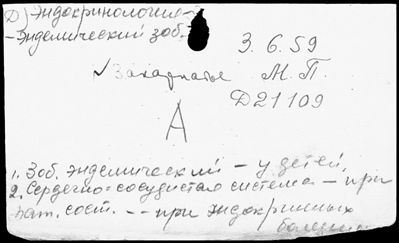 D) Эндокринология -
- Эндемический зоб.
3.6.59
✓ Захарчатье М.П.
D21109
A
1. Зоб. эндемический – у детей.
2. Сердечно-сосудистая система – при
пат. сост. -- при эндокринных
болезн.